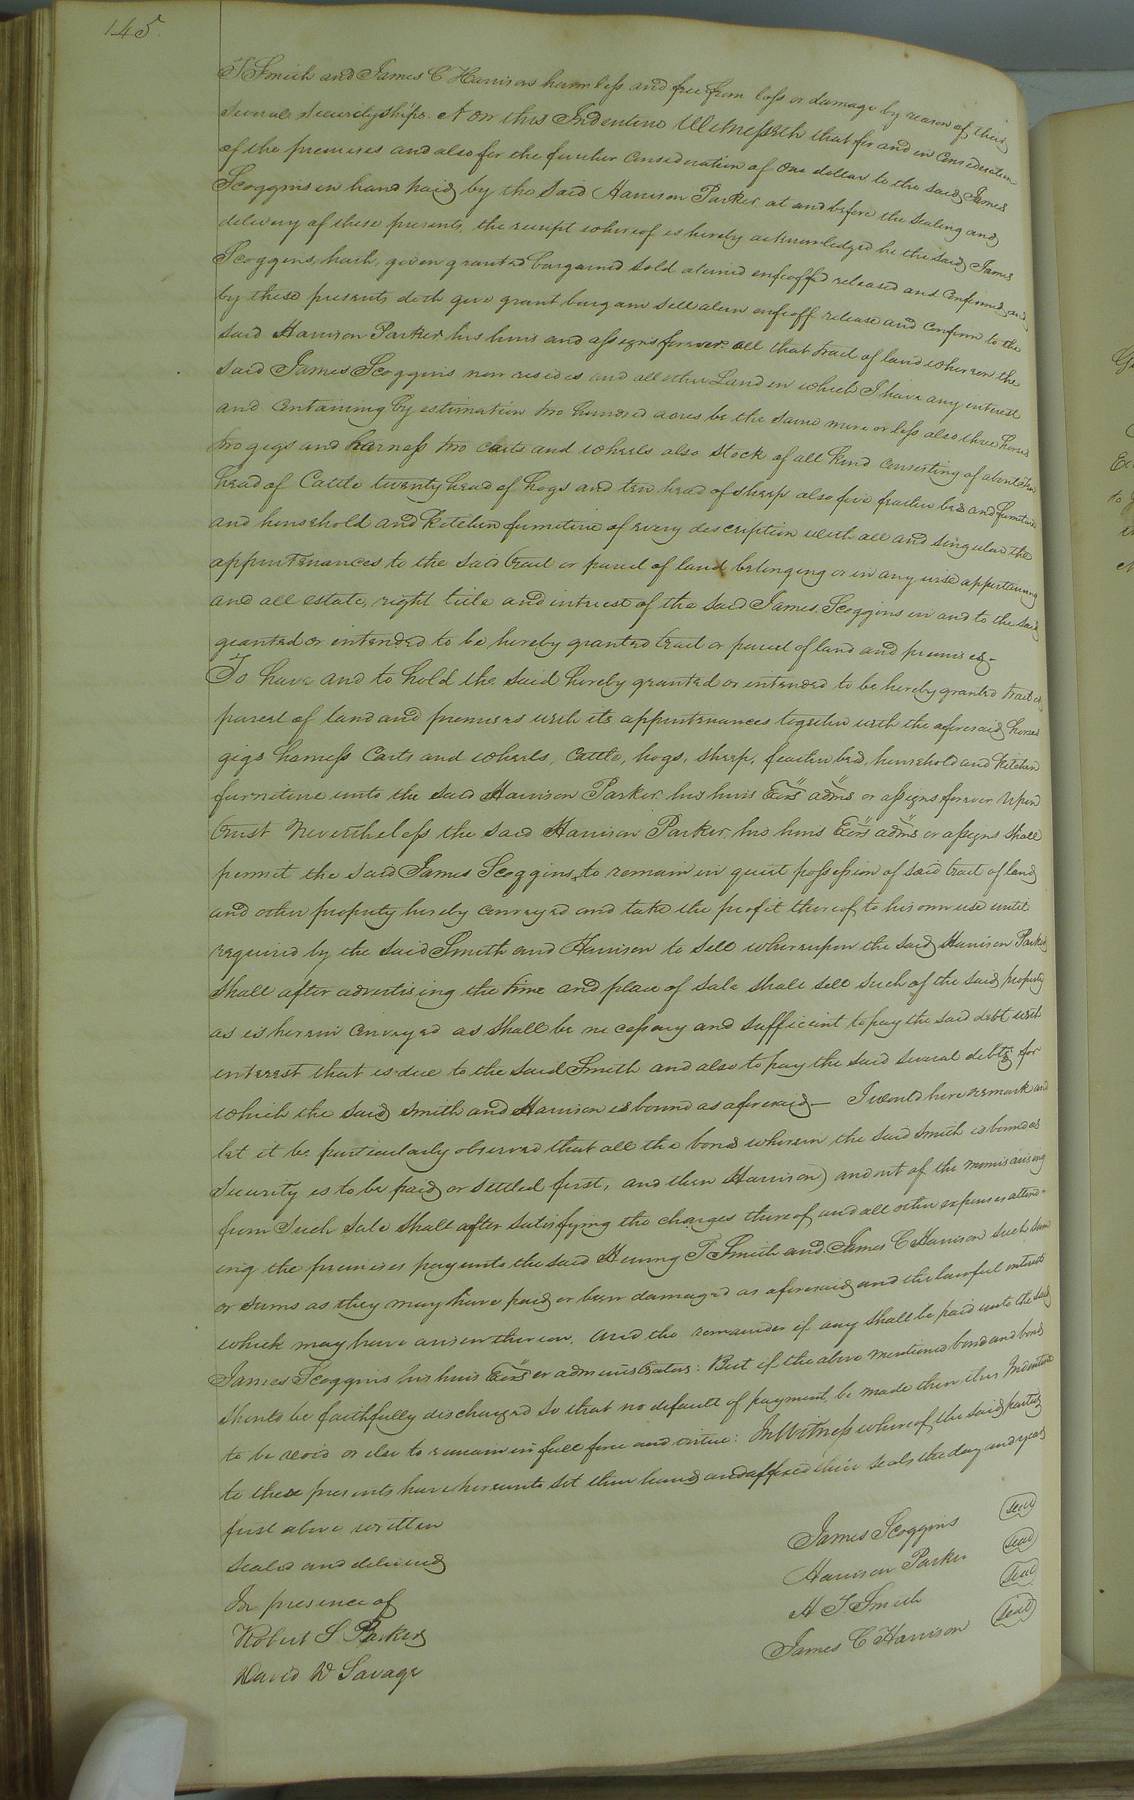 145.
T Smith and James C Harrison harmless and free from loss or damage by reason of their
several securityships. Now this Indenture Witnesseth that for and in consideration
of the premises and also for the further consideration of one dollar to the said James
Scoggins in hand paid by the said Harrison Parker at and before the sealing and
delivery of these presents, the receipt whereof is hereby acknowledged he the said James
Scoggins, hath, given granted bargained sold aliened enfeoffed released and confirmed, and
by these presents doth give grant bargain sell alien enfeoff release and confirm to the
said Harrison Parker his heirs and assigns forever all that tract of land whereon the
said James Scoggins now resides and all other Land in which I have any interest
and containing by estimation two hundred acres be the same more or less also three horses
two gigs and harness two carts and wheels also stock of all kind consisting of
head of Cattle twenty head of hogs and ten head of sheep also five feather beds and furniture
and household and Kitchen furniture of every description with all and singular the
appurtenances to the said tract or parcel of land belonging or in any wise appertaining
and all estate, right title and interest of the said James Scoggins in and to the said
granted or intended to be hereby granted tract or parcel of land and premises—
To have and to hold the said hereby granted or intended to be hereby granted tract or
parcel of land and premises with its appurtenances together with the aforesaid horses
gigs harness Carts and wheels, cattle, hogs, sheep, feather bed, household and kitchen
furniture unto the said Harrison Parker his heirs Exrs adms or assigns forever Upon
trust Nevertheless the said Harrison Parker, his heirs Exrs adms or assigns shall
permit the said James Scoggins to remain in quiet possession of said tract of land
and other property hereby conveyed and take the profit thereof to his own use until
required by the said Smith and Harrison to sell whereupon the said Harrison Parker
shall after advertising the time and place of sale shall sell such of the said property
as is herein conveyed as shall be necessary and sufficient to pay the said debt with
interest that is due to the said Smith and also to pay the said several debts for
which the said Smith and Harrison is bound as aforesaid— I would here remark and
let it be particularly observed that all the bonds wherein the said Smith is bound as
Security is to be paid or settled first, and then Harrison) and out of the monies arising
from such sale shall after satisfying the charges thereof and all other expenses attend-
ing the premises pay unto the said Henry T Smith and James C Harrison such sum
or sums as they may have paid or been damaged as aforesaid and the lawful interest
which may have arisen thereon, and the remainder if any shall be paid unto the said
James Scoggins his heirs Exrs or administrators: But if the above mentioned bond and bonds
should be faithfully discharged so that no default of payment, be made then this Indenture
to be void or else to remain in full force and virtue: In Witness whereof the said parties
to these presents have hereunto set their hands and affixed their seals the day and year
first above written
Sealed and delivered
In presence of
Robert S Parker
David W Savage
James Scoggins seal
Harrison Parker seal
H T Smith seal
James C Harrison seal